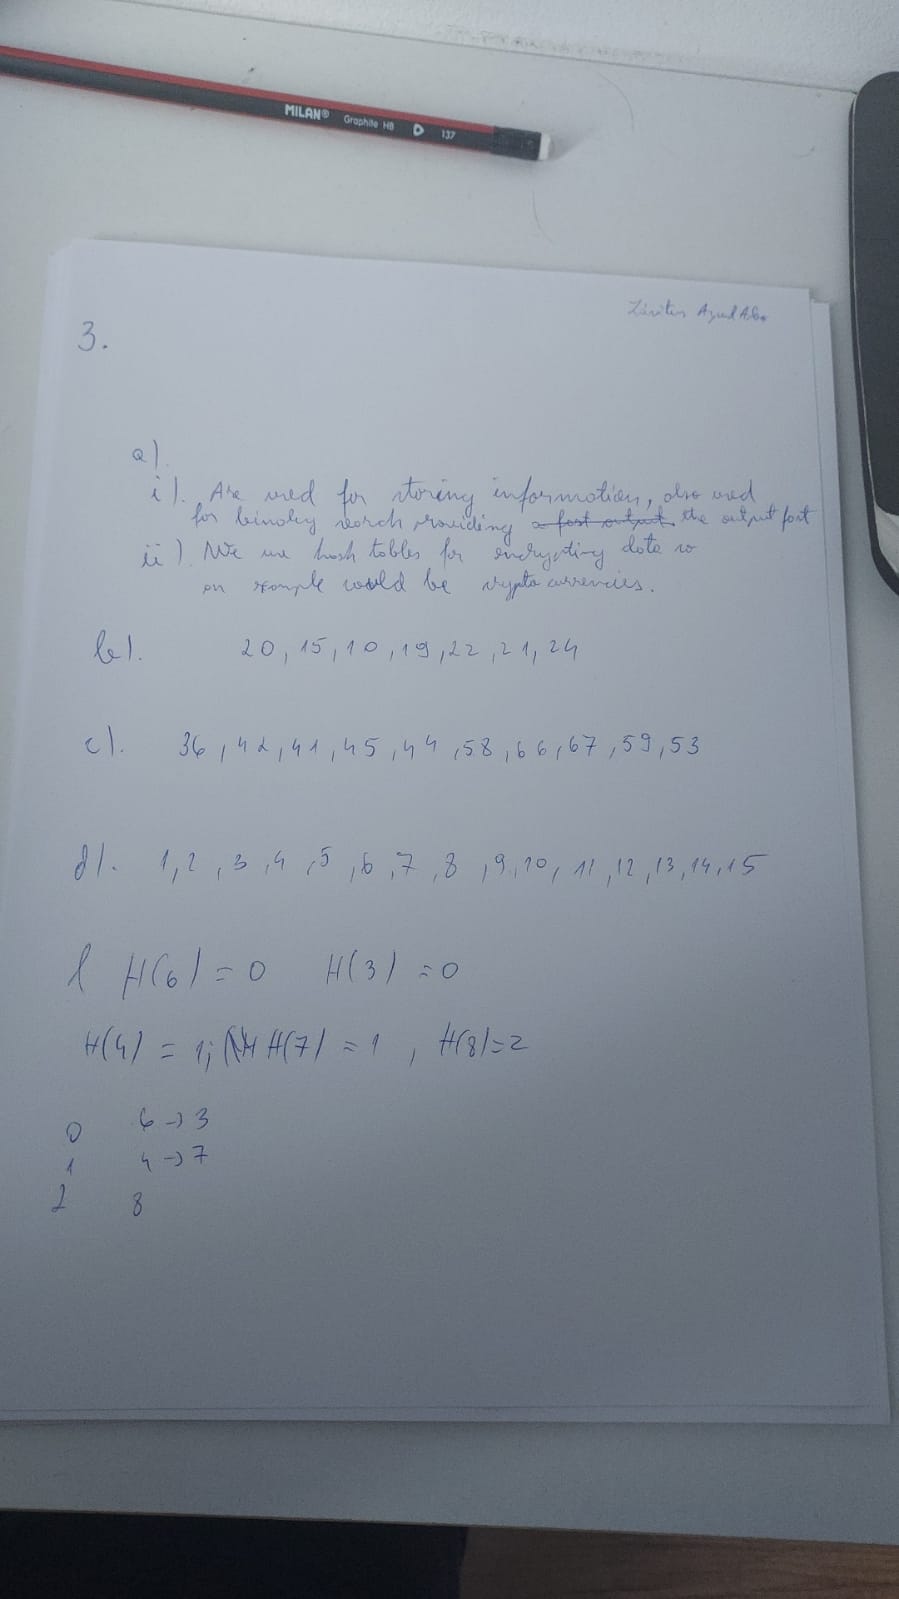 MILAN® Graphite HB 137
3.
a).
i). Are used for storing information, also used
for binary serch providing a fast output the output fast
ii). We use hash tables for encrypting data so
an exemple would be crypto currencies.
b). 20, 15, 10, 19, 22, 21, 24
c). 36, 42, 41, 45, 44, 58, 66, 67, 59, 53
d). 1, 2, 3, 4, 5, 6, 7, 8, 9, 10, 11, 12, 13, 14, 15
H(6) = 0 H(3) = 0
H(4) = 1; H(7) = 1, H(8) = 2
0 6 → 3
1 4 → 7
2 8